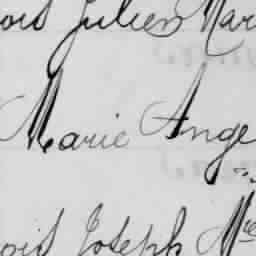 ois Julien Mar
Marie Ange
ois Joseph Mie